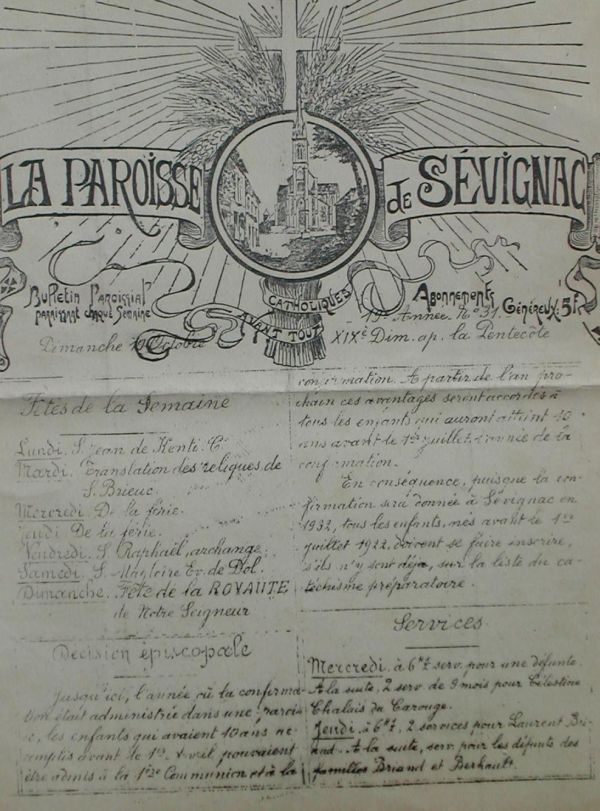 LA PAROISSE
de SÉVIGNAC
CATHOLIQUES
AVANT TOUT
Bulletin Paroissial
paraissant chaque Semaine
Abonnements
Généreux: 5f
Dimanche Octobre
Année. No 31.
XIXe Dim. ap. la Pentecôte
Fêtes de la Semaine
Lundi. S. Jean de Kenti. C.
Mardi. Translation des reliques de
S. Brieuc.
Mercredi. De la férie.
Jeudi. De la férie.
Vendredi. S. Raphaël, archange.
Samedi. S. Magloire Ev. de Dol.
Dimanche. Fête de la ROYAUTÉ
de Notre Seigneur
Décision épiscopale
Jusqu'ici, l'année où la confirma-
tion était administrée dans une parois-
se, les enfants qui avaient 10 ans ac-
complis avant le 1er Avril pouvaient
être admis à la 1ère Communion et à la
confirmation. A partir de l'an pro-
chain ces avantages seront accordés à
tous les enfants qui auront atteint 10
ans avant le 1er juillet, l'année de la
confirmation.
En conséquence, puisque la con-
firmation sera donnée à Sévignac en
1932, tous les enfants, nés avant le 1er
juillet 1922, doivent se faire inscrire,
s'ils n'y sont déjà, sur la liste du ca-
téchisme préparatoire.
Services
Mercredi. à 6h½ serv. pour une défunte.
A la suite, 2 serv. de 9 mois pour Célestine
Chalais du Carouge.
Jeudi. à 6h½, 2 services pour Laurent Bri-
and. A la suite, serv. pour les défunts des
familles Briand et Berhault.